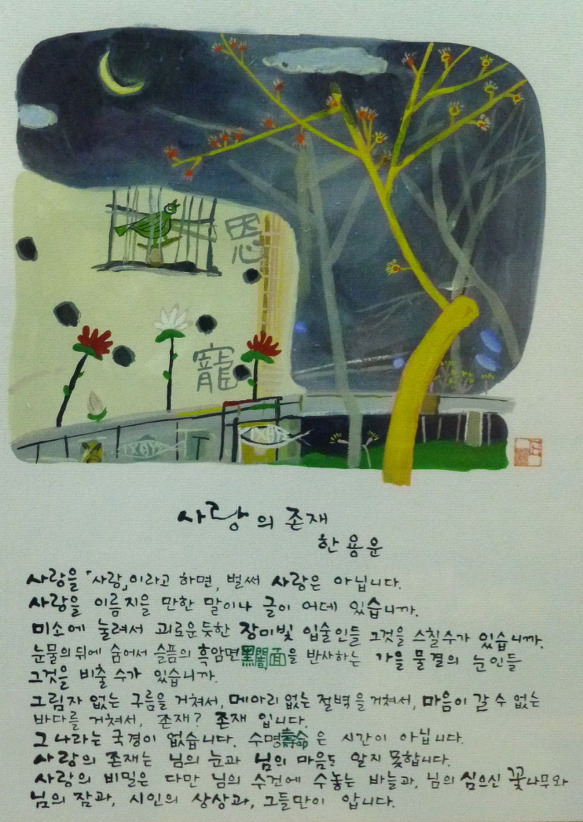 恩
寵
사랑의 존재
한용운
사랑을 「사랑」이라고 하면, 벌써 사랑은 아닙니다.
사랑을 이름지을 만한 말이나 글이 어데 있습니까.
미소에 눌려서 괴로운듯한 장미빛 입술인들 그것을 스칠수가 있습니까.
눈물의 뒤에 숨어서 슬픔의 흑암면黑闇面을 반사하는 가을 물결의 눈인들
그것을 비출 수가 있습니까.
그림자 없는 구름을 거쳐서, 메아리 없는 절벽을 거쳐서, 마음이 갈 수 없는
바다를 거쳐서, 존재? 존재 입니다.
그 나라는 국경이 없습니다. 수명壽命은 시간이 아닙니다.
사랑의 존재는 님의 눈과 님의 마음도 알지 못합니다.
사랑의 비밀은 다만 님의 수건에 수놓는 바늘과, 님의 심으신 꽃나무와
님의 잠과, 시인의 상상과, 그들만이 압니다.